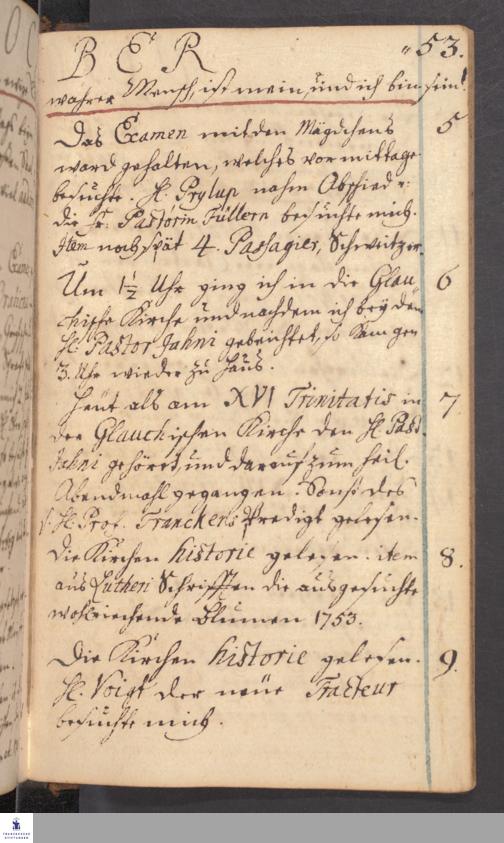 BER " 53.
wahrer Mensch, ist mein, und ich bin sein!
Das Examen mit den Mägdchens 5
ward gehalten, welches vormittage
besuchte. H. Prylup nahm Abschied u.
die Fr. Pastorin Füllern besuchte mich.
Item noch spät 4. Passagier, Schweitzer.
Um 1½ Uhr ging ich in die Glau- 6
chische Kirche und nachdem ich bey dem
H. Pastor Jahni gebeichtet, so kam gen
3. Uhr wieder zu Haus.
Heut als am XVI Trinitatis in 7.
der Glauchischen Kirche den H. Past.
Jahni gehöret, und darauf zum heil.
Abendmahl gegangen. Sonst des
s. H. Prof. Franckens Predigt gelesen.
Die Kirchen historie gelesen. item 8.
aus Lutheri Schrifften die ausgesuchte
wohlriechende Blumen 1753.
Die Kirchen historie gelesen. 9.
H. Voigt der neue Tracteur
besuchte mich.
FRANCKESCHE
STIFTUNGEN